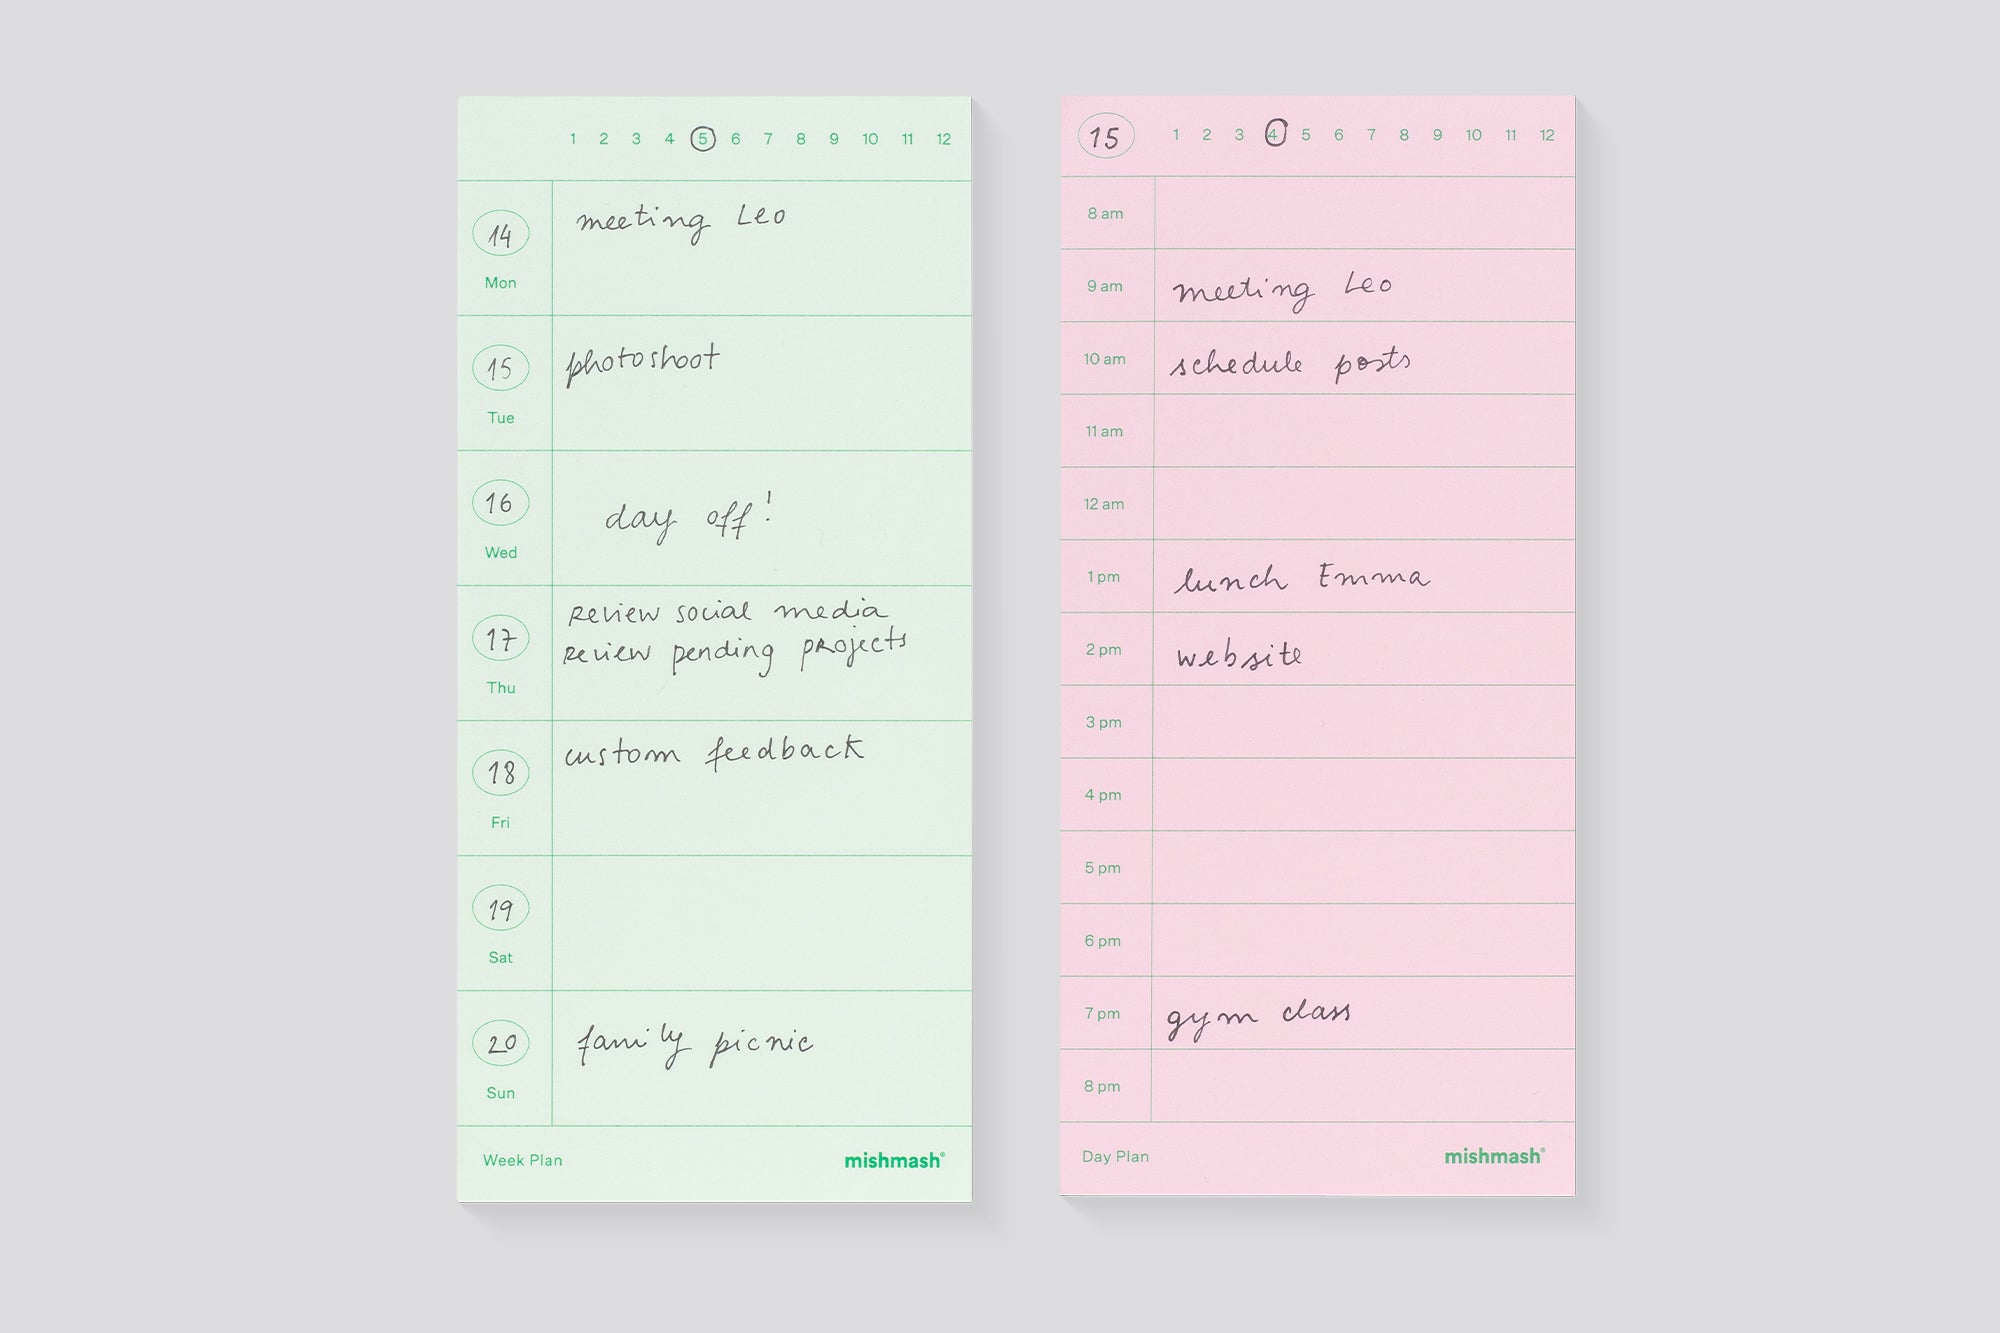 1 2 3 4 5 6 7 8 9 10 11 12
14
Mon
meeting Leo
15
Tue
photoshoot
16
Wed
day off!
17
Thu
review social media
review pending projects
18
Fri
custom feedback
19
Sat
20
Sun
family picnic
Week Plan
mishmash®
15
1 2 3 4 5 6 7 8 9 10 11 12
8 am
9 am
meeting Leo
10 am
schedule posts
11 am
12 am
1 pm
lunch Emma
2 pm
website
3 pm
4 pm
5 pm
6 pm
7 pm
gym class
8 pm
Day Plan
mishmash®